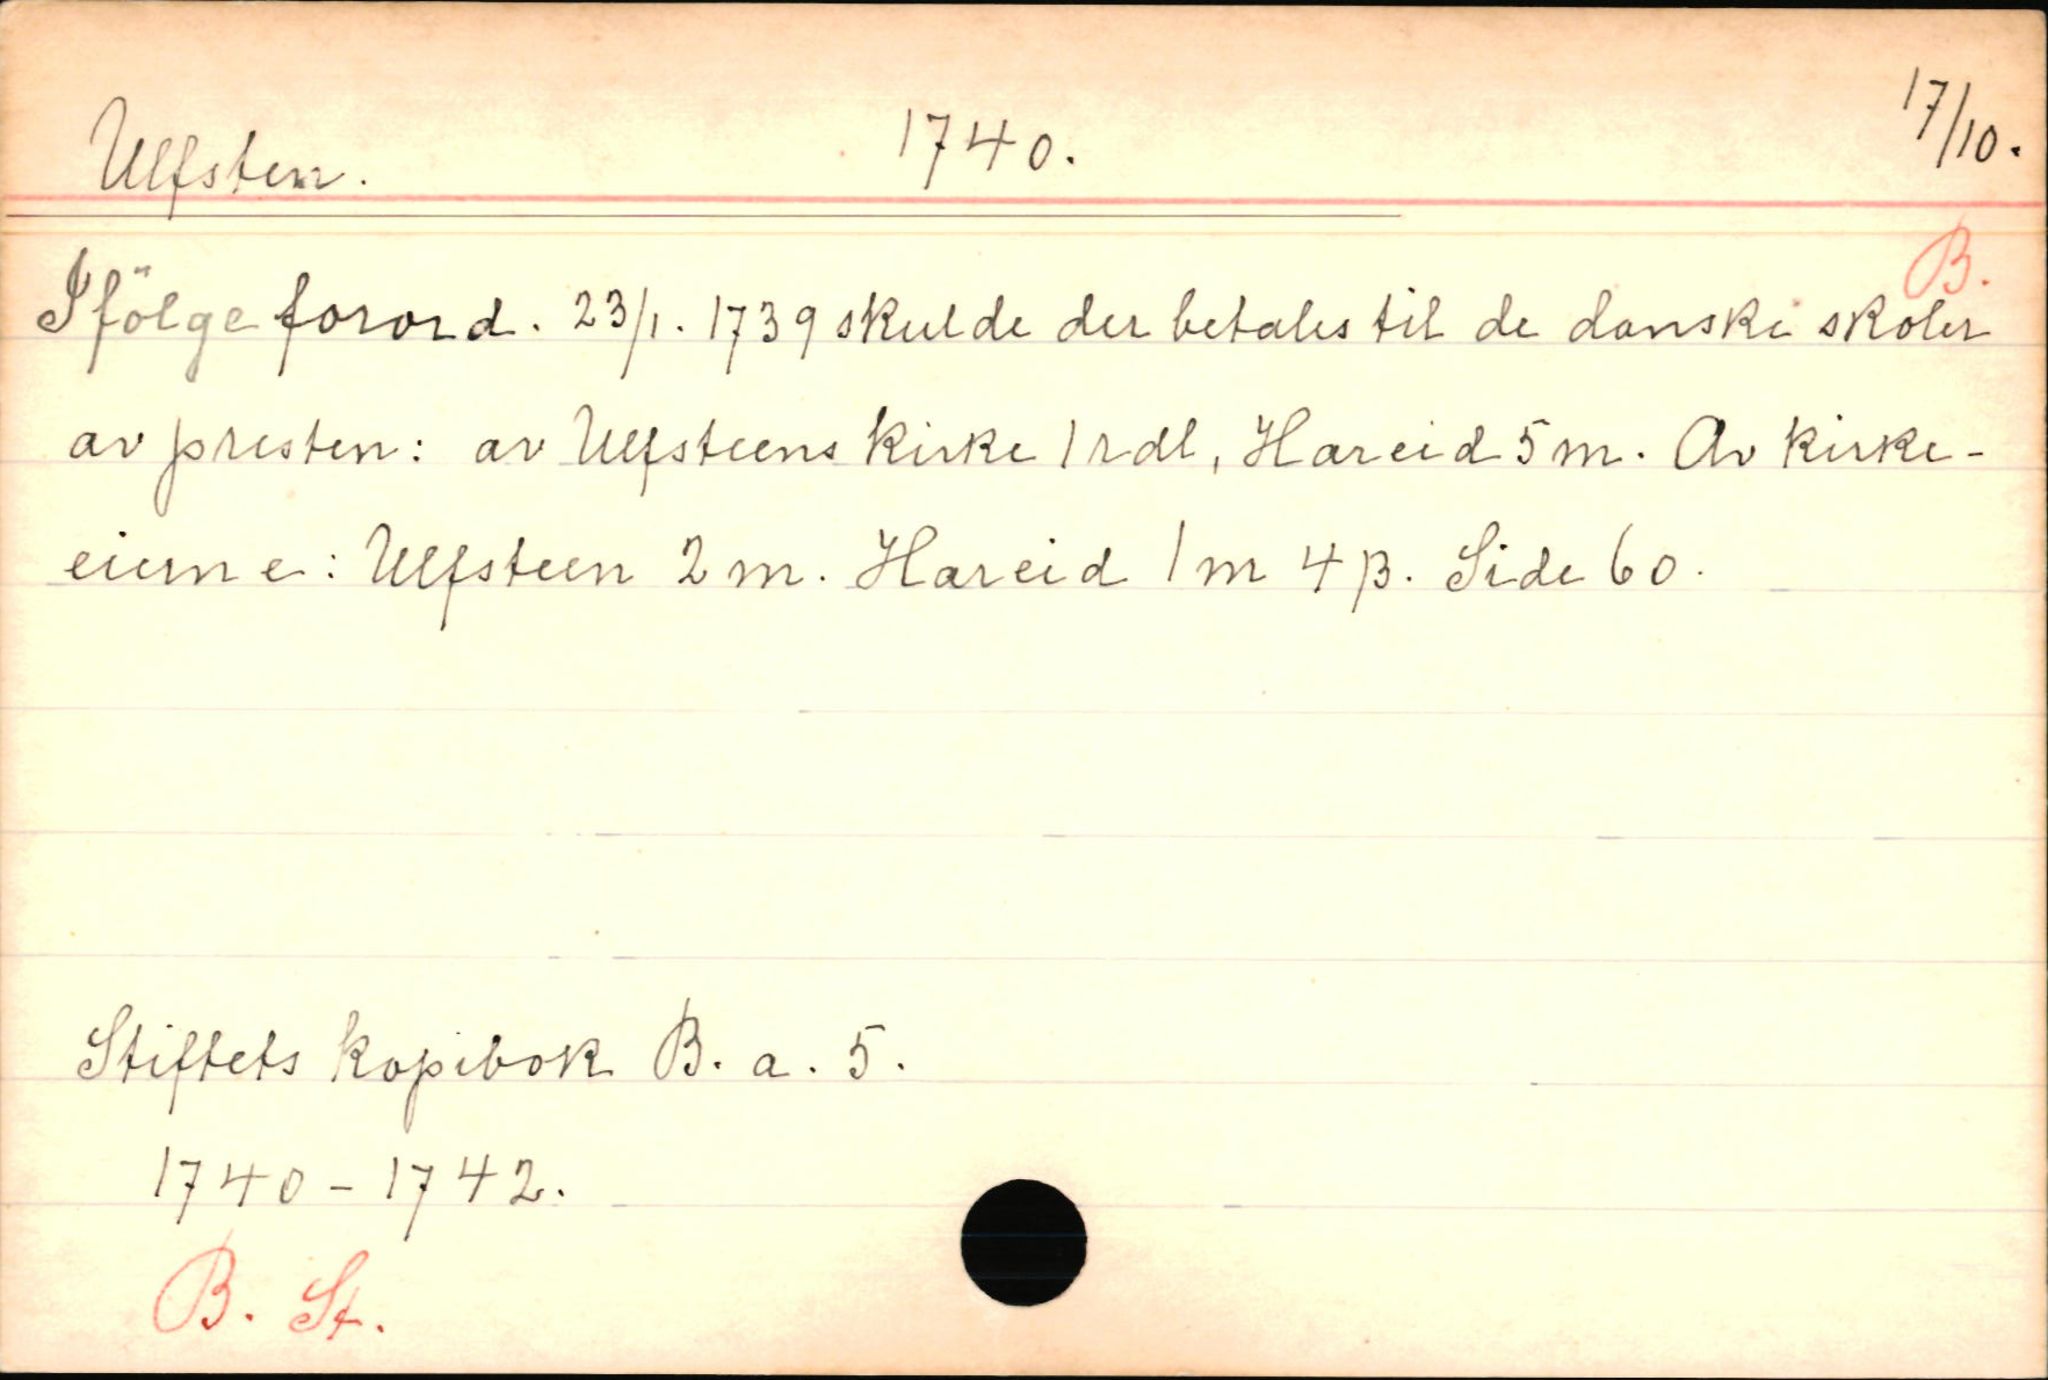 Ulfsten. 1740. 17/10.
B.
Ifölge forord. 23/1. 1739 skulde der betales til de danske skoler
av presten: av Ulfsteens kirke 1 rdl, Hareid 5 m. Av kirke-
eierne: Ulfsteen 2 m. Hareid 1 m 4 β. Side 60.
Stiftets kopibok B. a. 5.
1740-1742.
B. St.